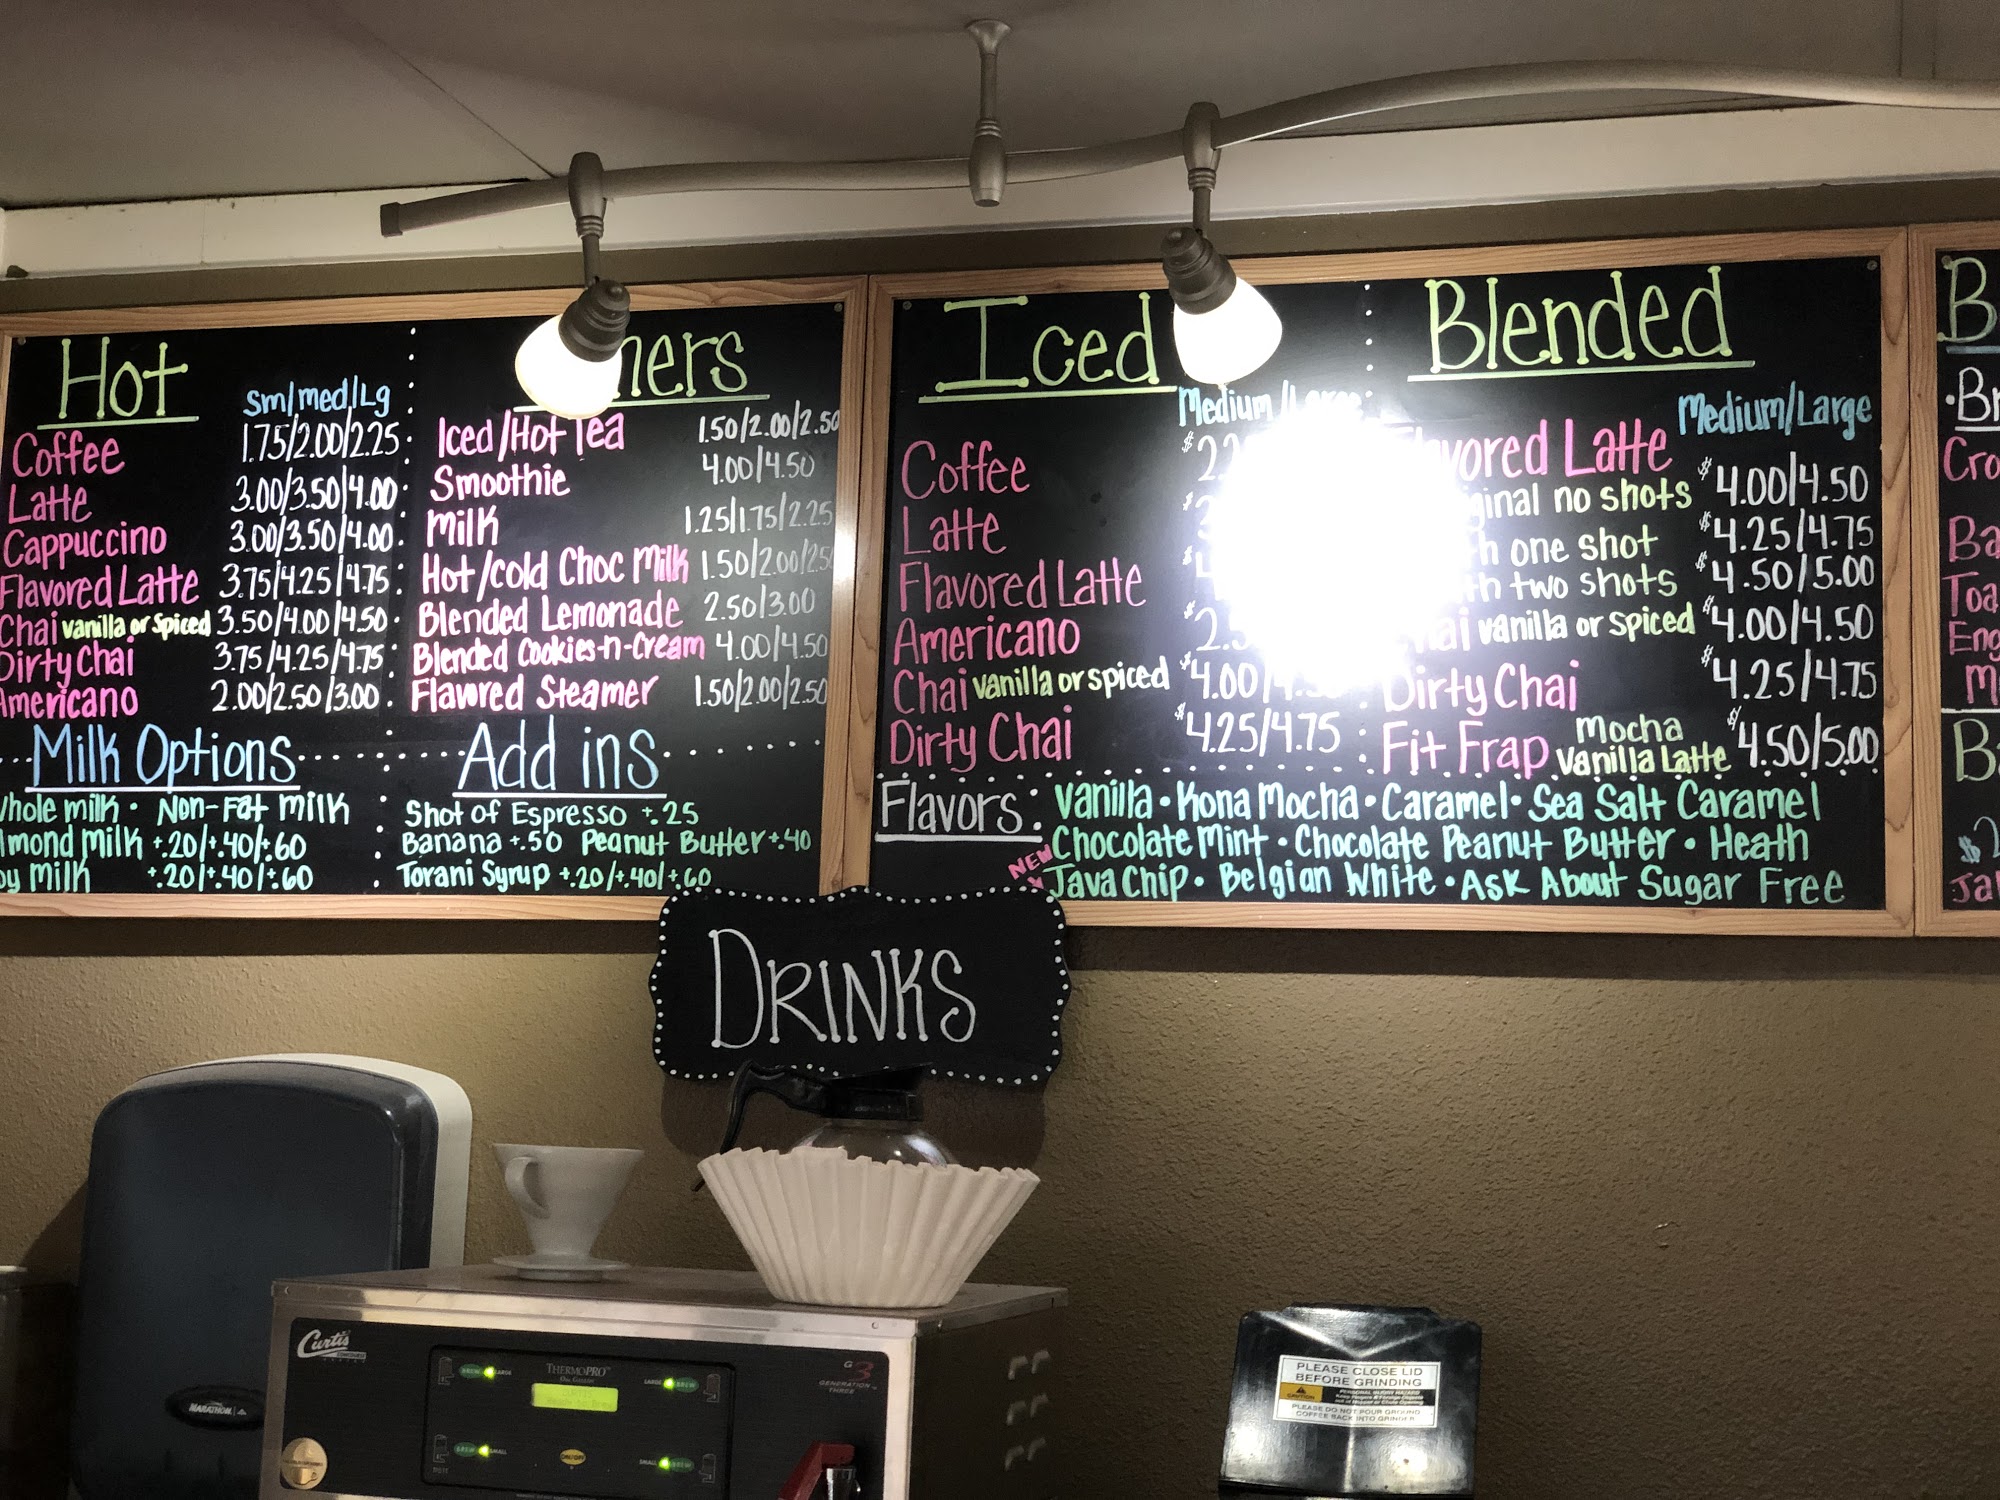 Hot
Sm/med/Lg
Coffee 1.75/2.00/2.25
Latte 3.00/3.50/4.00
Cappuccino 3.00/3.50/4.00
Flavored Latte 3.75/4.25/4.75
Chai vanilla or spiced 3.50/4.00/4.50
Dirty Chai 3.75/4.25/4.75
Americano 2.00/2.50/3.00
Iced/Hot Tea 1.50/2.00/2.50
Smoothie 4.00/4.50
Milk 1.25/1.75/2.25
Hot/cold Choc Milk 1.50/2.00/2.50
Blended Lemonade 2.50/3.00
Blended Cookies-n-Cream 4.00/4.50
Flavored Steamer 1.50/2.00/2.50
Milk Options
Whole milk • Non-Fat milk
Almond milk +.20/+.40/+.60
Soy milk +.20/+.40/+.60
Add ins
Shot of Espresso +.25
Banana +.50 Peanut Butter +.40
Torani Syrup +.20/+.40/+.60
Iced
Medium/Large
Coffee
Latte
Flavored Latte
Americano
Chai vanilla or spiced $4.00/4.50
Dirty Chai $4.25/4.75
Blended
Medium/Large
Flavored Latte
original no shots $4.00/4.50
one shot $4.25/4.75
two shots $4.50/5.00
Chai vanilla or spiced $4.00/4.50
Dirty Chai $4.25/4.75
Fit Frap Mocha
Vanilla Latte $4.50/5.00
Flavors: Vanilla • Kona Mocha • Caramel • Sea Salt Caramel
Chocolate Mint • Chocolate Peanut Butter • Heath
NEW Java Chip • Belgian White • Ask About Sugar Free
DRINKS
Curtis
THERMOPRO
G3
GENERATION THREE
BREW LARGE
LARGE BREW
BREW SMALL
SMALL BREW
ON/OFF
MARATHON
PLEASE CLOSE LID
BEFORE GRINDING
CAUTION
PERSONAL INJURY HAZARD
PLEASE DO NOT POUR GROUND
COFFEE BACK INTO GRINDER